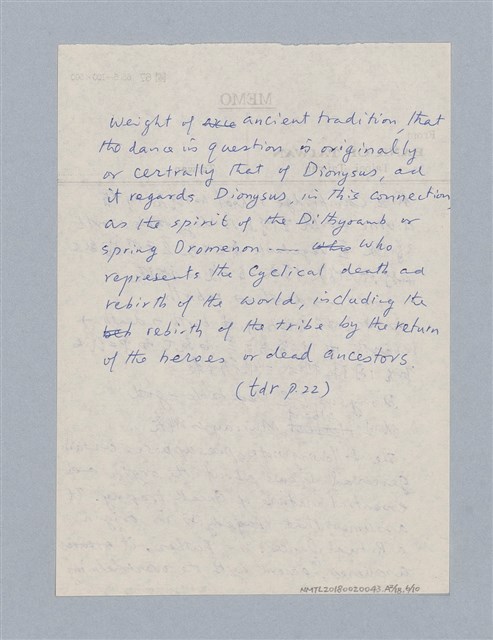 weight of ancient tradition, that
the dance in question is originally
or centrally that of Dionysus, ad
it regards Dionysus, in this connection,
as the spirit of the Dithyramb or
spring Dromenon ---- who
represents the Cyclical death ad
rebirth of the world, including the
rebirth of the tribe by the return
of the heroes or dead ancestors
(tdr p.22)
MEMO